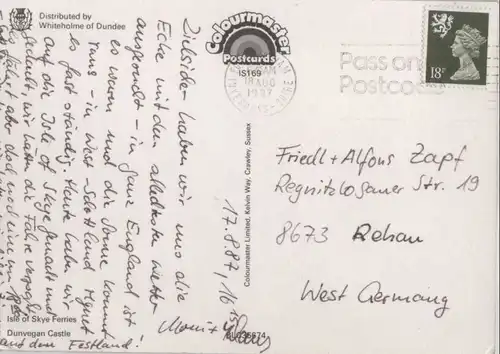 Distributed by
Whiteholme of Dundee
Colourmaster
Postcards
IS169
18 AUG
1987
Pass on
Postcodes
18P
Leider haben wir uns die
Ecke mit dem schlechten Wetter
ausgesucht - in ganz England ist
es warm und die Sonne kommt
raus - in West-Schottland regnet
es fast ständig. Heute haben wir
auf die Isle of Skye gemacht und
geglaubt, wir hätten die Fähre verpaßt
auf dem Festland!
17.8.87, 16 15
Moni +
Friedl + Alfons Zapf
Regnitzlosauer Str. 19
8673 Rehau
West Germany
Colourmaster Limited, Kelvin Way, Crawley, Sussex
Isle of Skye Ferries
Dunvegan Castle